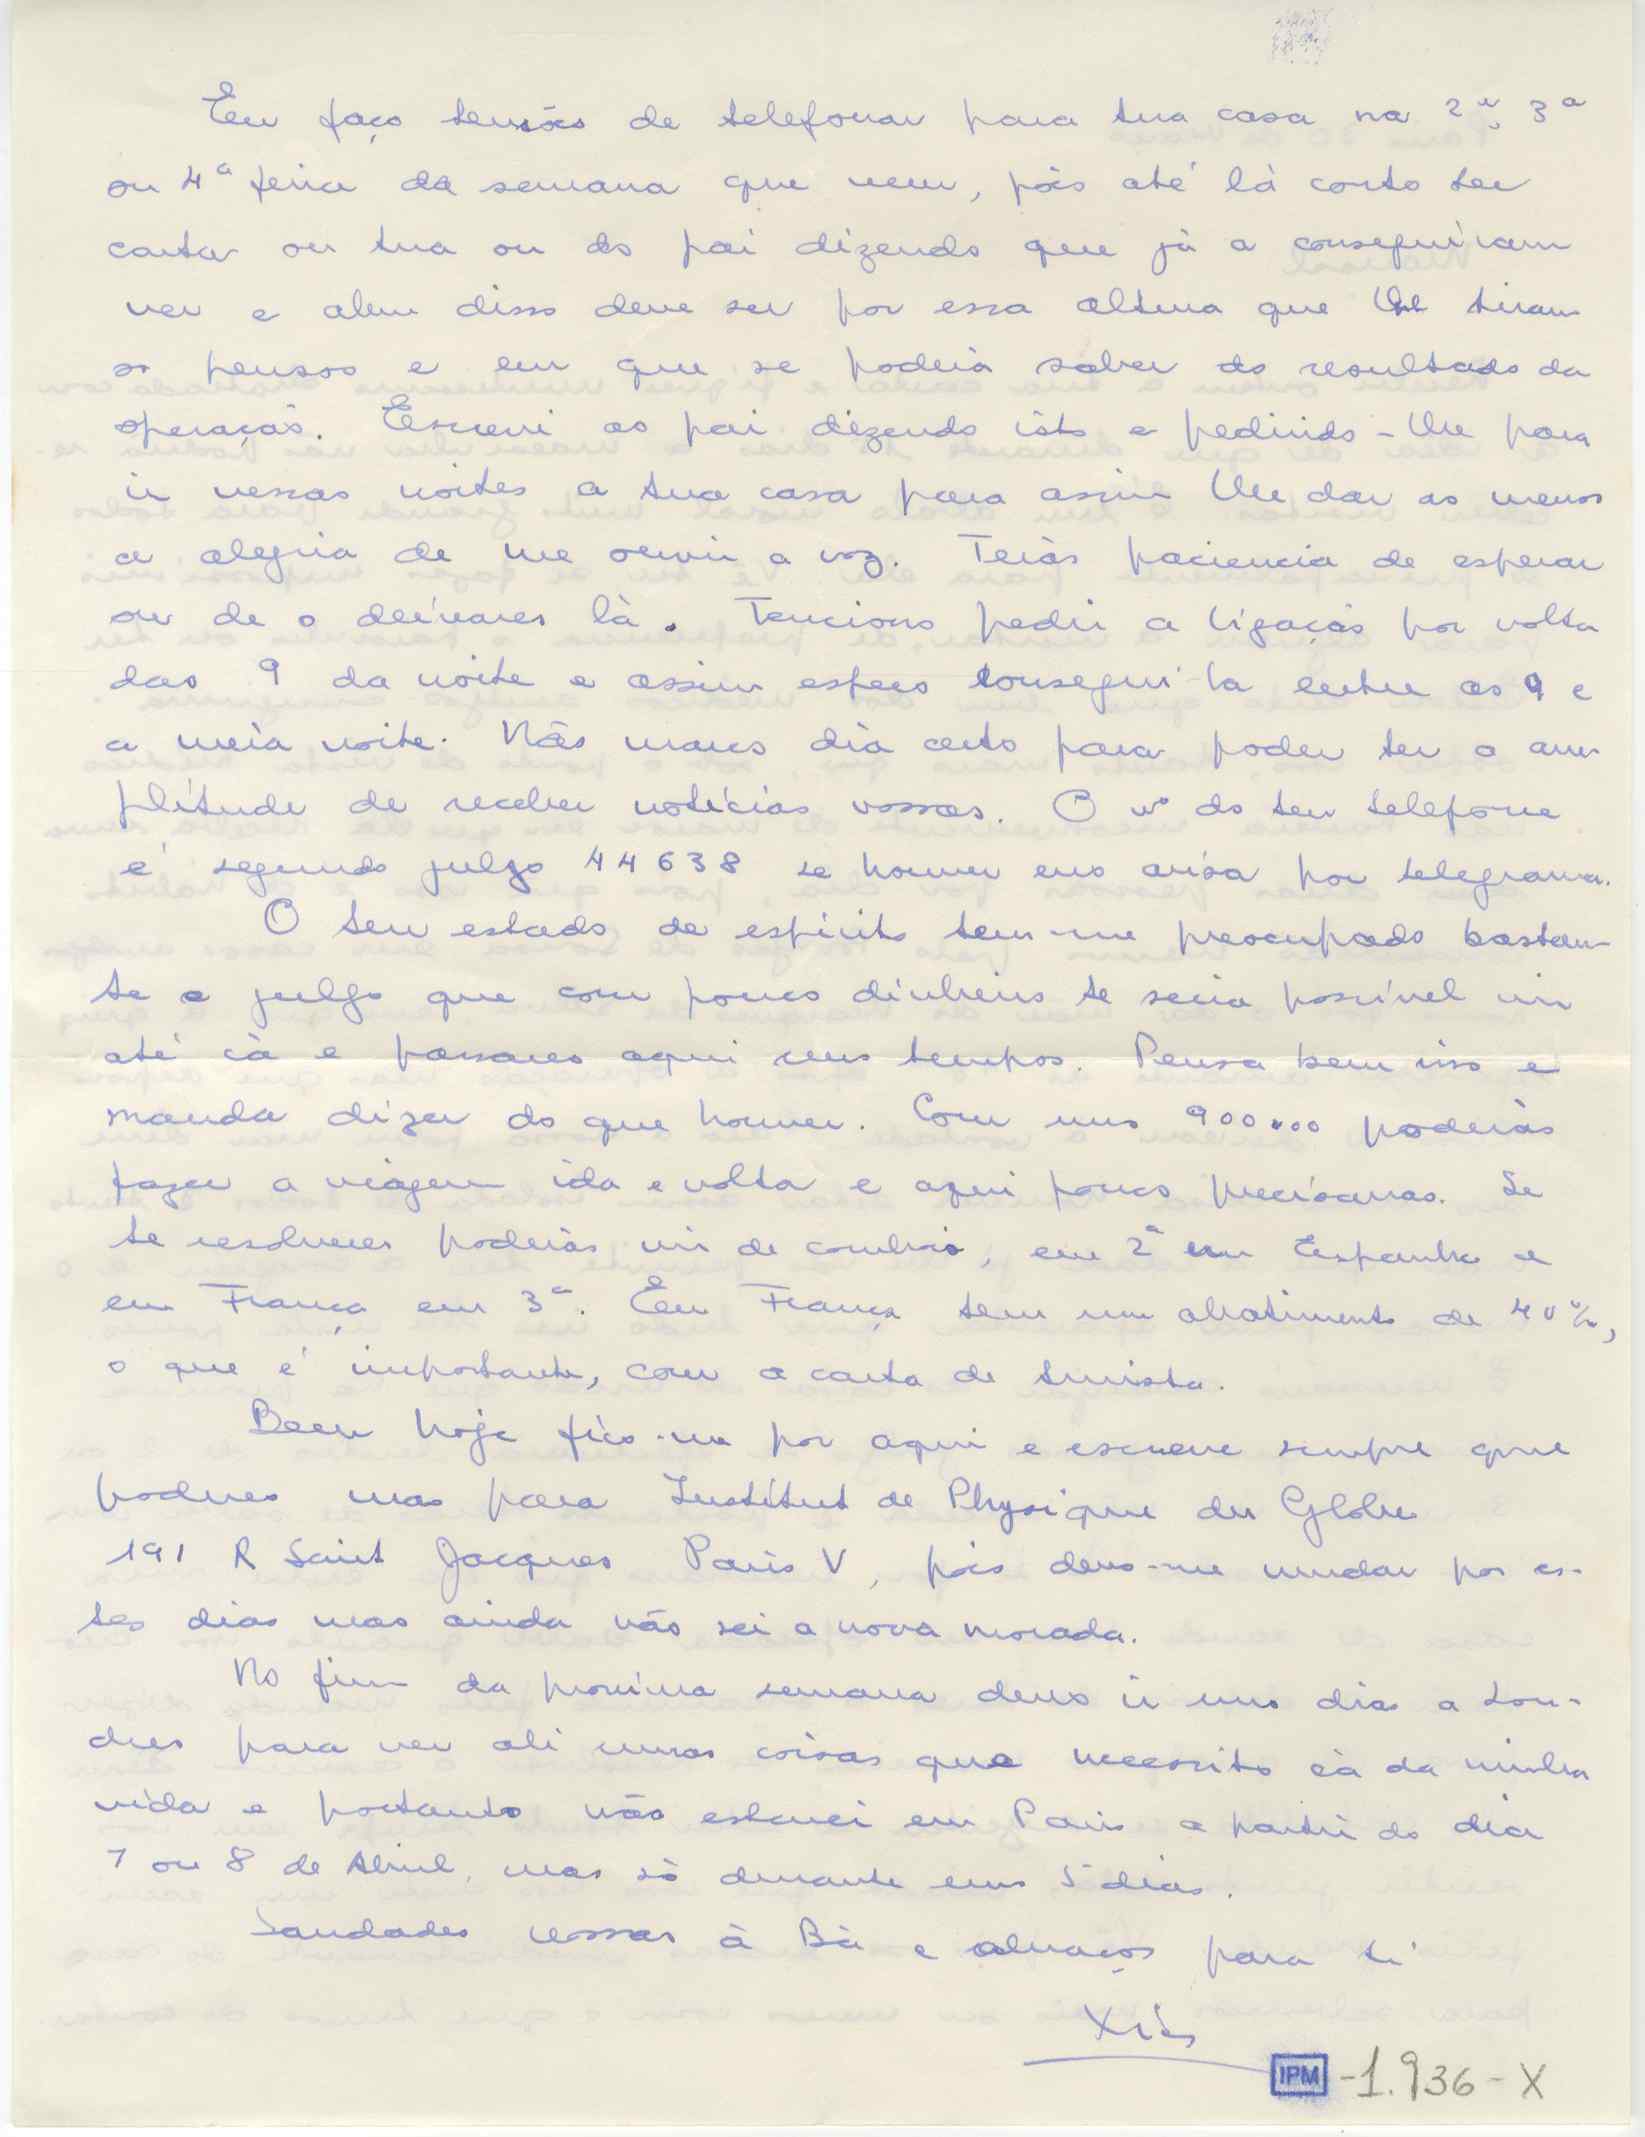 Eu faço tensões de telefonar para tua casa na 2ª, 3ª
ou 4ª feira da semana que vem, pois até lá conto ter
carta ou tua ou do pai dizendo que já a conseguiram
ver e alem disso deve ser por essa altura que lhe tiram
os pensos e em que se poderá saber do resultado da
operação. Escrevi ao pai dizendo isto e pedindo-lhe para
ir nessas noites a tua casa para assim lhe dar ao menos
a alegria de me ouvir a voz. Terás paciencia de esperar
ou de o deixares lá. Tenciono pedir a ligação por volta
das 9 da noite e assim espero consegui-la entre as 9 e
a meia noite. Não marco dia certo para poder ter a am
plitude de receber notícias vossas. O nº do teu telefone
é segundo julgo 44638 se houver erro avisa por telegrama.
O teu estado de espirito tem-me preocupado bastan-
te e julgo que com pouco dinheiro te seria possivel vir
até cá e passares aqui uns tempos. Pensa bem isso e
manda dizer do que houver. Com uns 900.00 poderás
fazer a viagem ida e volta e aqui pouco precisavas. Se
te resolveres poderás vir de comboio, em 2ª em Espanha e
em França em 3ª. Em França tem um abatimento de 40%,
o que é importante, com a carta de turista.
Bem hoje fico-me por aqui e escreve sempre que
poderes mas para Institut de Physique du Globe
191 R Saint Jacques Paris V, pois devo-me mudar por es-
tes dias mas ainda não sei a nova morada.
No fim da proxima semana devo ir uns dias a Lon-
dres para ver ali umas coisas que necessito cá da minha
vida e portanto não estarei em Paris a partir do dia
7 ou 8 de Abril, mas só durante uns 5 dias.
Saudades nossas á Bá e abraços para ti
IPM -1.936-X